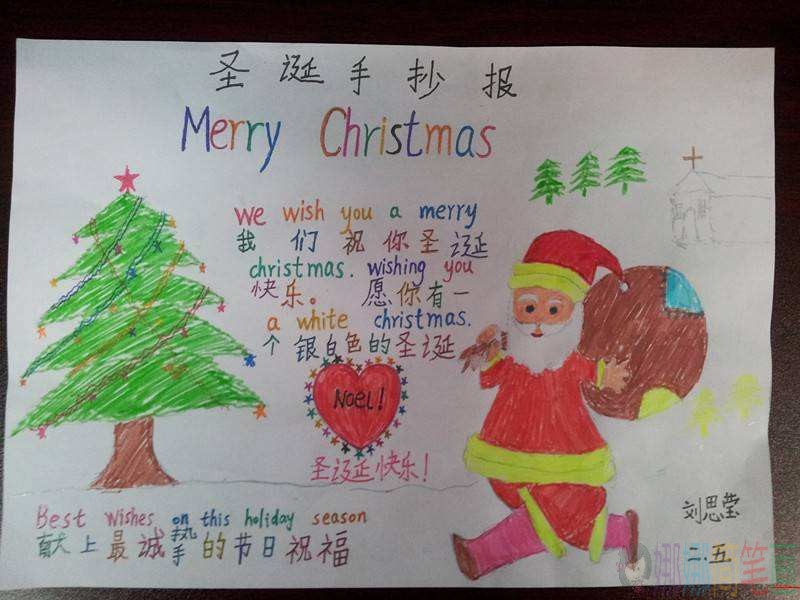 圣诞手抄报
Merry Christmas
we wish you a merry
我们祝你圣诞
christmas. wishing you
快乐。愿你有一
a white christmas.
个银白色的圣诞
Noel!
圣诞快乐!
Best wishes on this holiday season
献上最诚挚的节日祝福
刘思莹
二.五